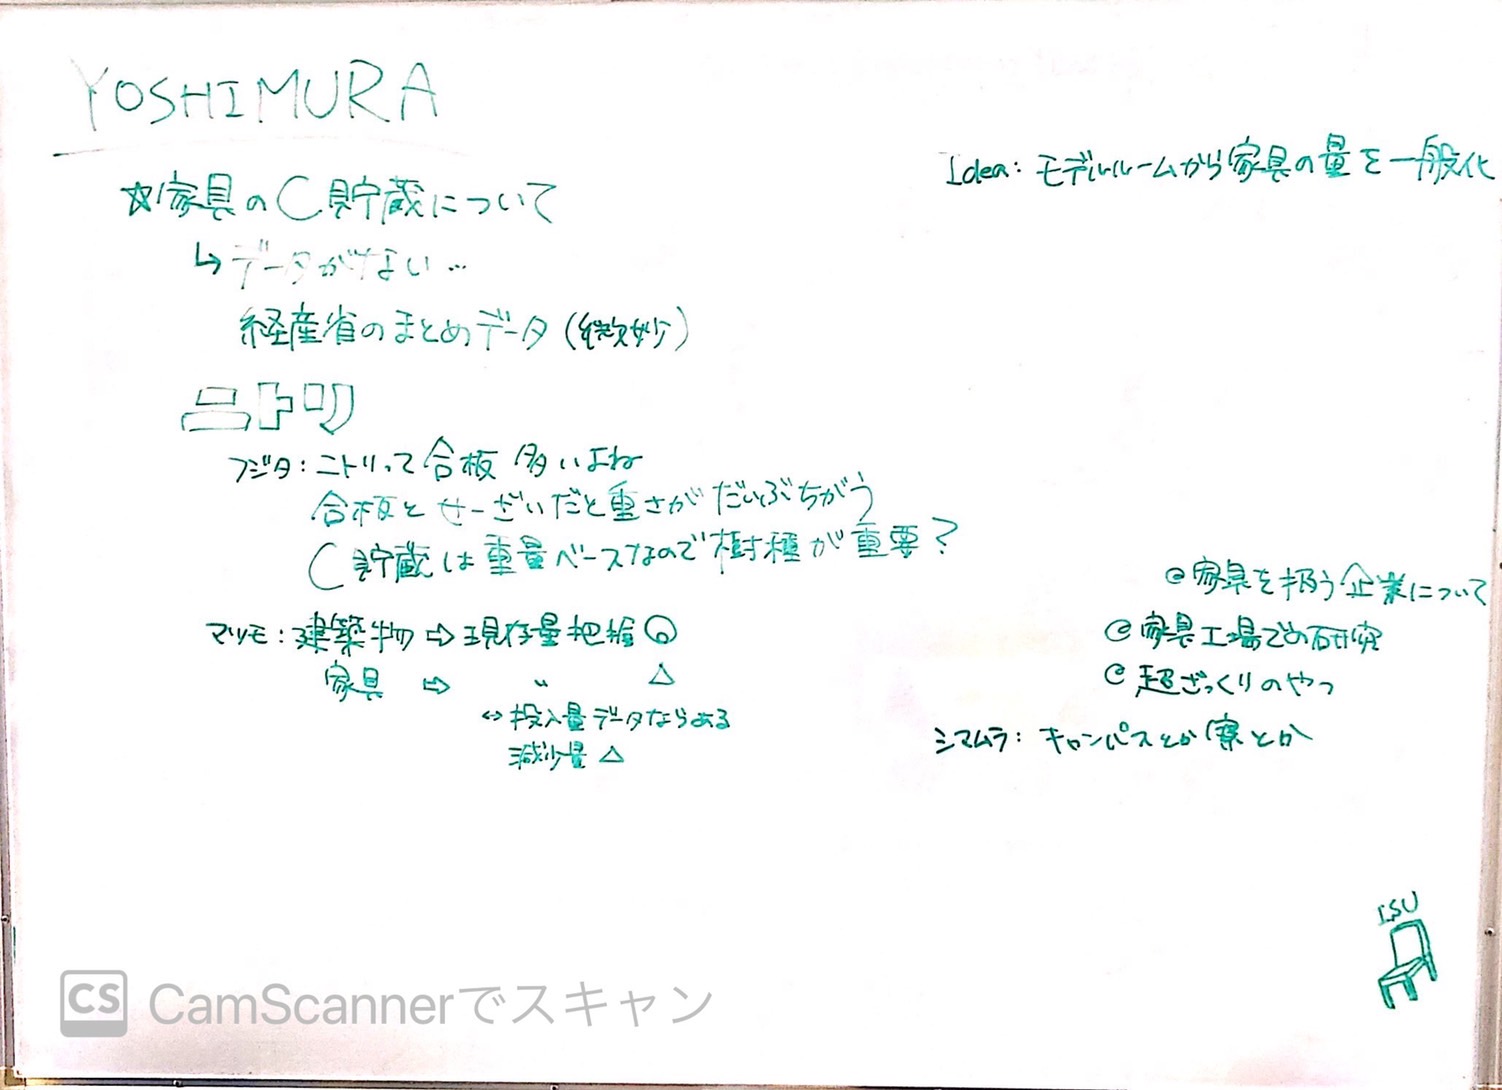 YOSHIMURA
☆家具のC貯蔵について
↳データがない…
経産省のまとめデータ(微妙)
ニトリ
フジタ:ニトリって合板 多いよね
合板とせーざいだと重さがだいぶちがう
C貯蔵は重量ベースなので樹種が重要?
マツモ:建築物⇨現存量把握◎
家具 ⇨ 〃 △
↔投入量データならある
減少量△
Idea:モデルルームから家具の量を一般化
@家具を扱う企業について
@家具工場での研究
@超ざっくりのやつ
シマムラ:キャンパスとか寮とか
ISU
CS CamScannerでスキャン